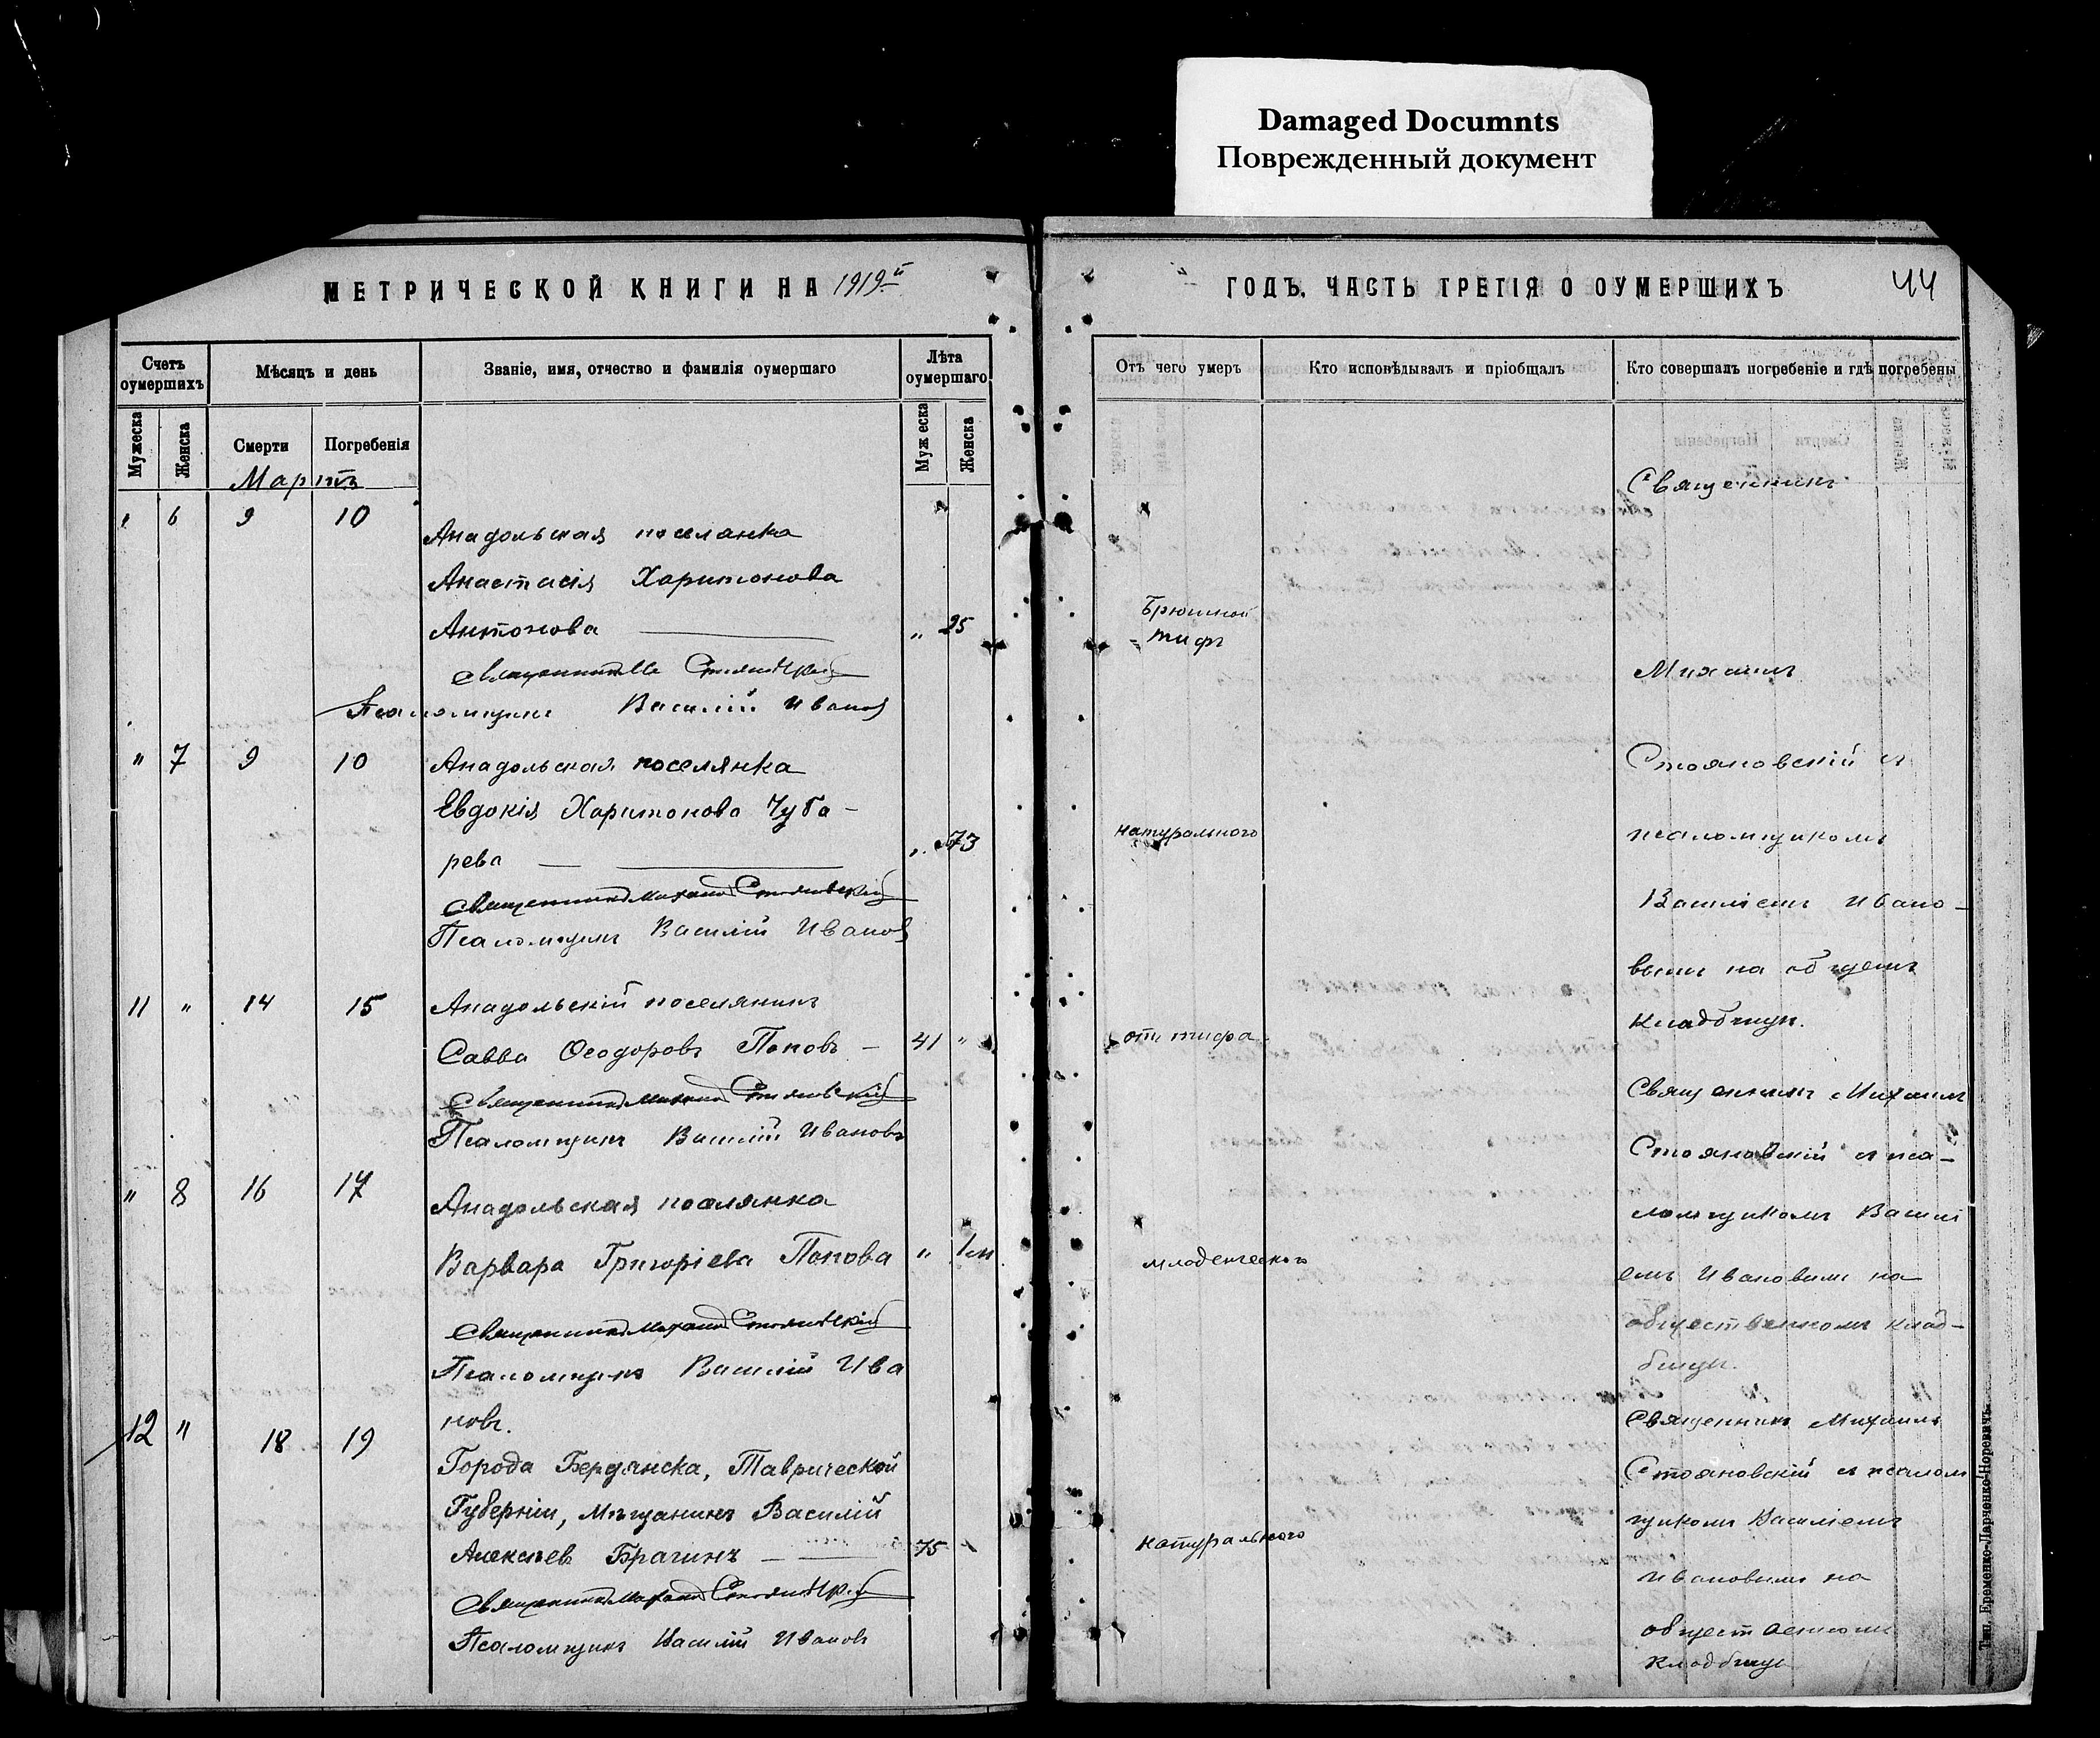 Damaged Documnts
Поврежденный документ
МЕТРИЧЕСКОЙ КНИГИ НА 1919й
Счетъ оумершихъ
Мѣсяцъ и день
Званіе, имя, отчество и фамилія оумершаго
Лѣта оумершаго
Мужеска
Женска
Смерти
Погребенія
Муж еска
Женска
Мартъ
6 9 10
Анадольская поселянка
Анастасія Харитонова
Антонова
„ 25
Священникъ
Псаломщикъ Василій Иванов
„ 7 9 10
Анадольская поселянка
Евдокія Харитонова Чуба-
рева
„ 73
Священникъ Михаилъ Стояновскій
Псаломщикъ Василій Иванов
11 „ 14 15
Анадольскій поселянинъ
Савва Ѳеодоровъ Поповъ -
41 „
Священникъ Михаилъ Стояновскій
Псаломщикъ Василій Ивановъ
„ 8 16 17
Анадольская поселянка
Варвара Григоріева Попова
„ 1
Священникъ Михаилъ Стояновскій
Псаломщикъ Василій Ива
новъ.
12 „ 18 19
Города Бердянска, Таврической
Губерніи, Мѣщанинъ Василій
Алексѣев Брагинъ —
75
Священникъ Михаилъ Стояновскій
Псаломщикъ Василій Ивановъ
ГОДЪ. ЧАСТЬ ТРЕТІЯ О ОУМЕРШИХЪ
44
Отъ чего умеръ
Кто исповѣдывалъ и пріобщалъ
Кто совершалъ погребеніе и гдѣ погребены
Брюшной
тифъ
натурального
отъ тифа
младенческ
натурального
Священникъ
Михаилъ
Стояновскій съ
псаломщикомъ
Василіемъ Ивано-
вымъ на общемъ
кладбищѣ.
Священникъ Михаилъ
Стояновскій съ пса-
ломщикомъ Васил
емъ Ивановымъ на
общественномъ клад-
бищѣ.
Священникъ Михаилъ
Стояновскій съ псалом
щикомъ Василіемъ
Ивановымъ на
общественномъ
кладбищѣ
Тип. Еременко-Ларченко-Норевичъ.